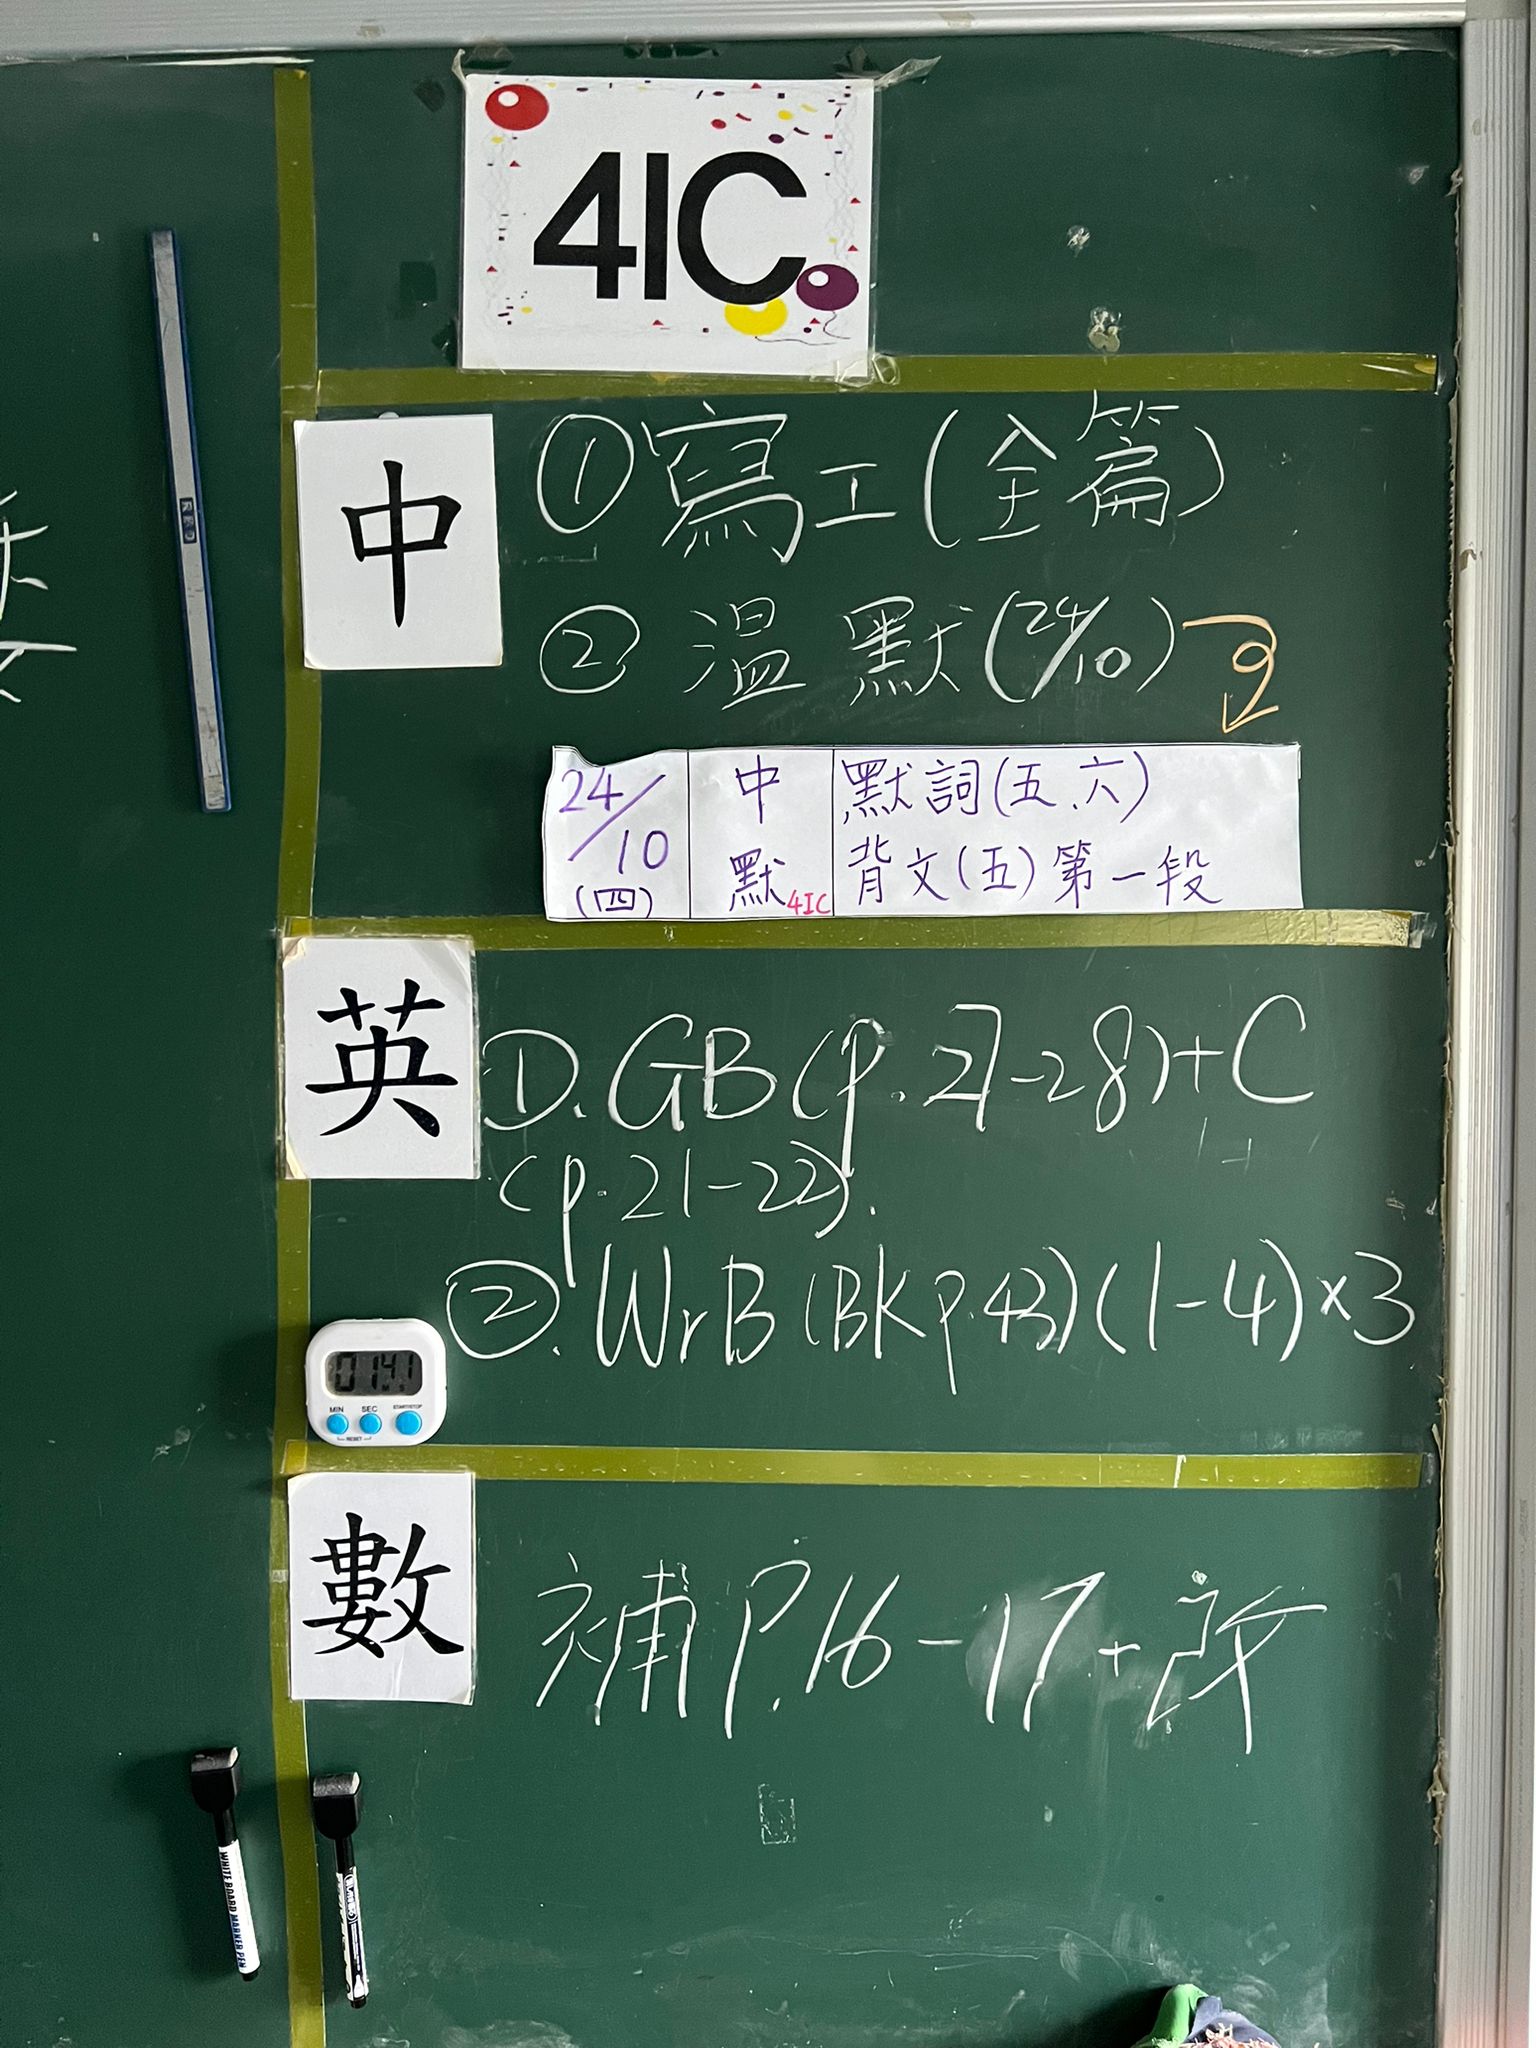 4IC
中
① 寫工(全篇)
② 温默(24/10)
24/10 (四)
中默 4IC
默詞(五、六)
背文(五)第一段
英
①. GB (p.27-28)+C
(p.21-22).
②. WrB (BK p.43)(1-4)×3
01:41
M S
MIN SEC START/STOP
RESET
數
補 P.16-17+改
WHITE BOARD MARKER PEN